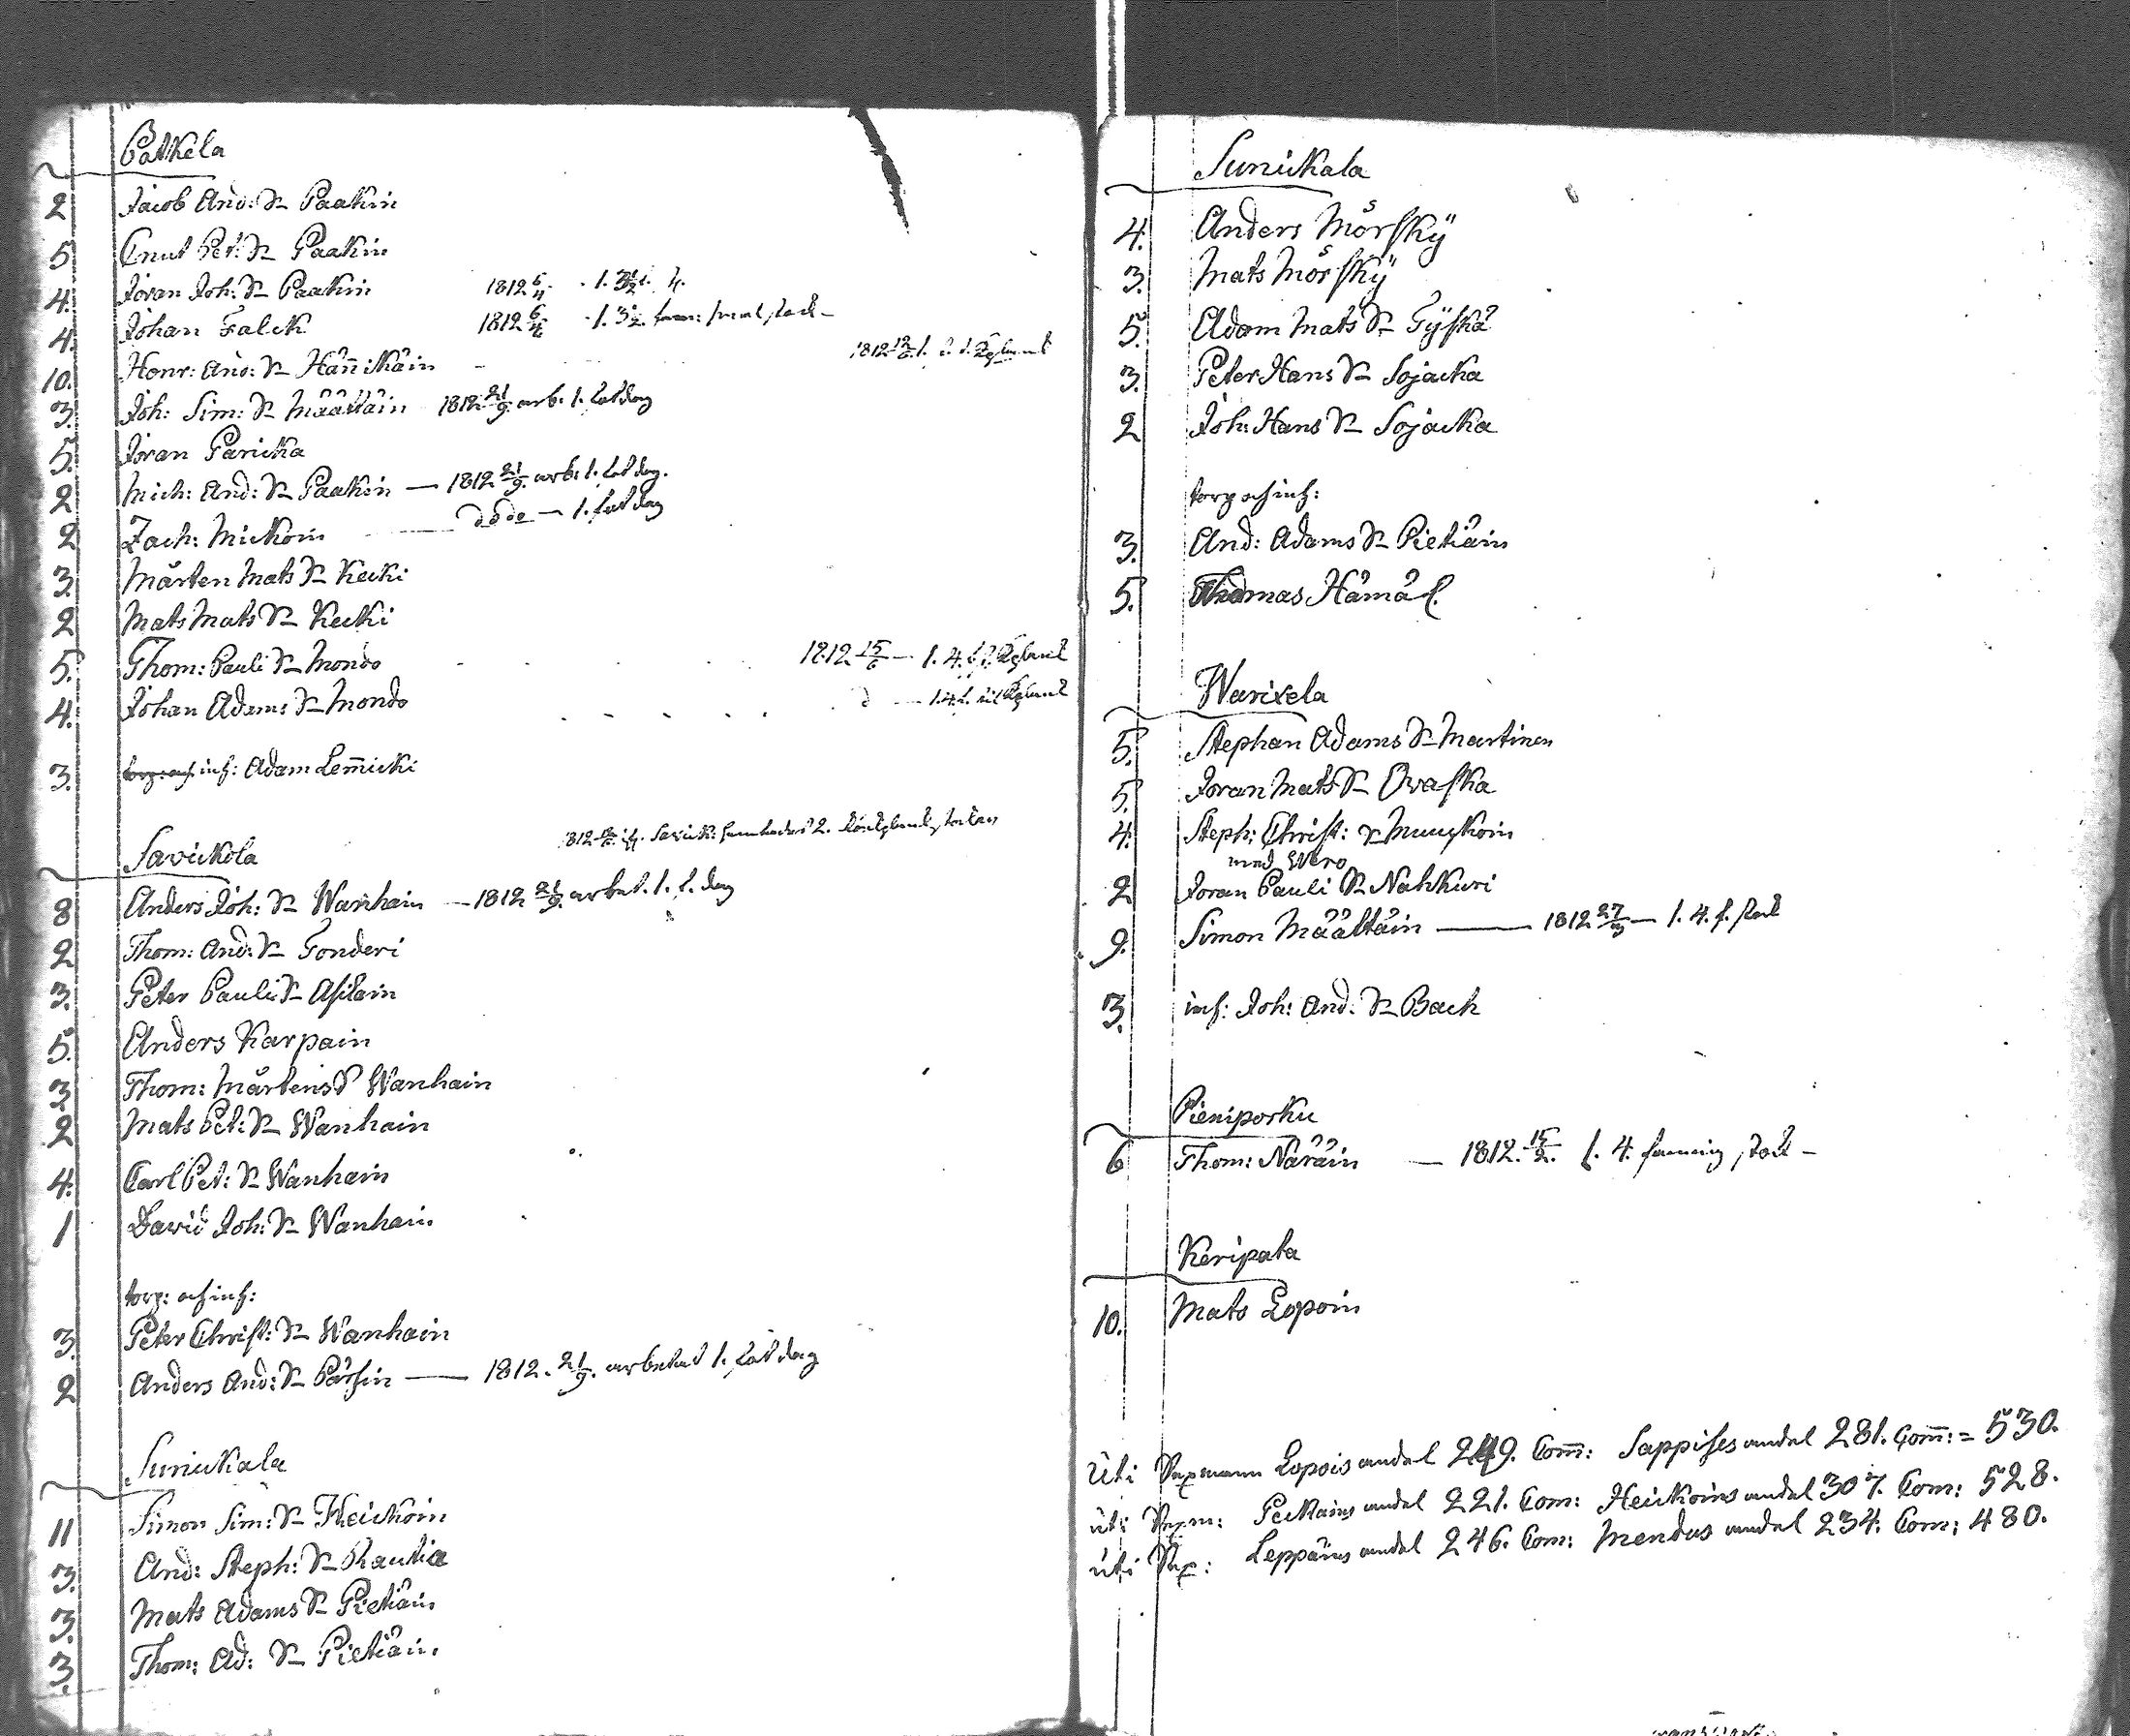 Patkela
2 Jacob And: Sn Paakin
5 Cnut Pet: Sn Paakin
4. Jöran Joh: Sn Paakin 1812 5/4. 1. 3½ f. 4.
4. Johan Falck 1812 6/4 1. 3½
10. Henr: And: Sn Hännikäin 1812
3. Joh: Sim: Sn Määttäin 1812 21/9. arb. 1. ßat dag
5. Jöran Paricka
2 Mich: And: Sn Paakin — 1812 21/9. arb: 1. ßat dag.
2 Zach: Mickoin dode — 1. ßat dag
3. Mårten Mats Sn Kecki
2 Mats Mats Sn Kecki
5 Thom: Pauli Sn Mondo 1812 15/6 — 1. 4. f.
4. Johan Adams Sn Mondo d — 1. 4. f.
3. inh: Adam Lem̄icki
Savickola 1812
8 Anders Joh: Sn Wanhain — 1812 21/9. arbet. 1. ß. dag
2 Thom: And: Sn Tonderi
3. Peter Pauli Sn Asikain
5. Anders Karpain
3 Thom: Mårtens S Wanhain
2 Mats Pet: Sn Wanhain
4. Carl Pet: Sn Wanhain
1 David Joh: Sn Wanhain
torp: och inh:
3. Peter Christ: Sn Wanhain
2 Anders And: Sn Pärsin — 1812. 21/9. arbetat 1. ßat dag
Sunickala
11 Simon Sim: Sn Heickoin
3. And: Steph: Sn Rautia
3. Mats Adams Sn Pietiäin
3. Thom: Ad: Sn Pietiäin
Sunickala
4. Anders Mörsky
3. Mats Mörsky
5. Adam Mats Sn Tyskä
3. Peter Hans Sn Sojacka
2 Joh: Hans Sn Sojacka
torp och inh:
3. And: Adams Sn Pietiäin
5. Thomas Hämäl.
Warixela
5. Stephan Adams Sn Martinen
5 Jöran Mats Sn Owaska
4. Steph: Christ: Sn Muuskoin
med Wero
2 Jöran Pauli Sn Nahkuri
9. Simon Määttäin — 1812 27/3 — 1. 4. f. stock
3. inh: Joh: And: Sn Bach
Pieniporku
6 Thom: Näräin — 1812. 15/2. 1. 4. famnig stock —
Keripata
10. Mats Lopoin
Uti Sexmann Lopois andel 249. Com̄: Sappises andel 281. Com̄: = 530.
uti Sexm: Peckains andel 221. Com: Heickoins andel 307. Com: 528.
uti Sex: Leppäins andel 246. Com: Mendus andel 234. Com: 480.